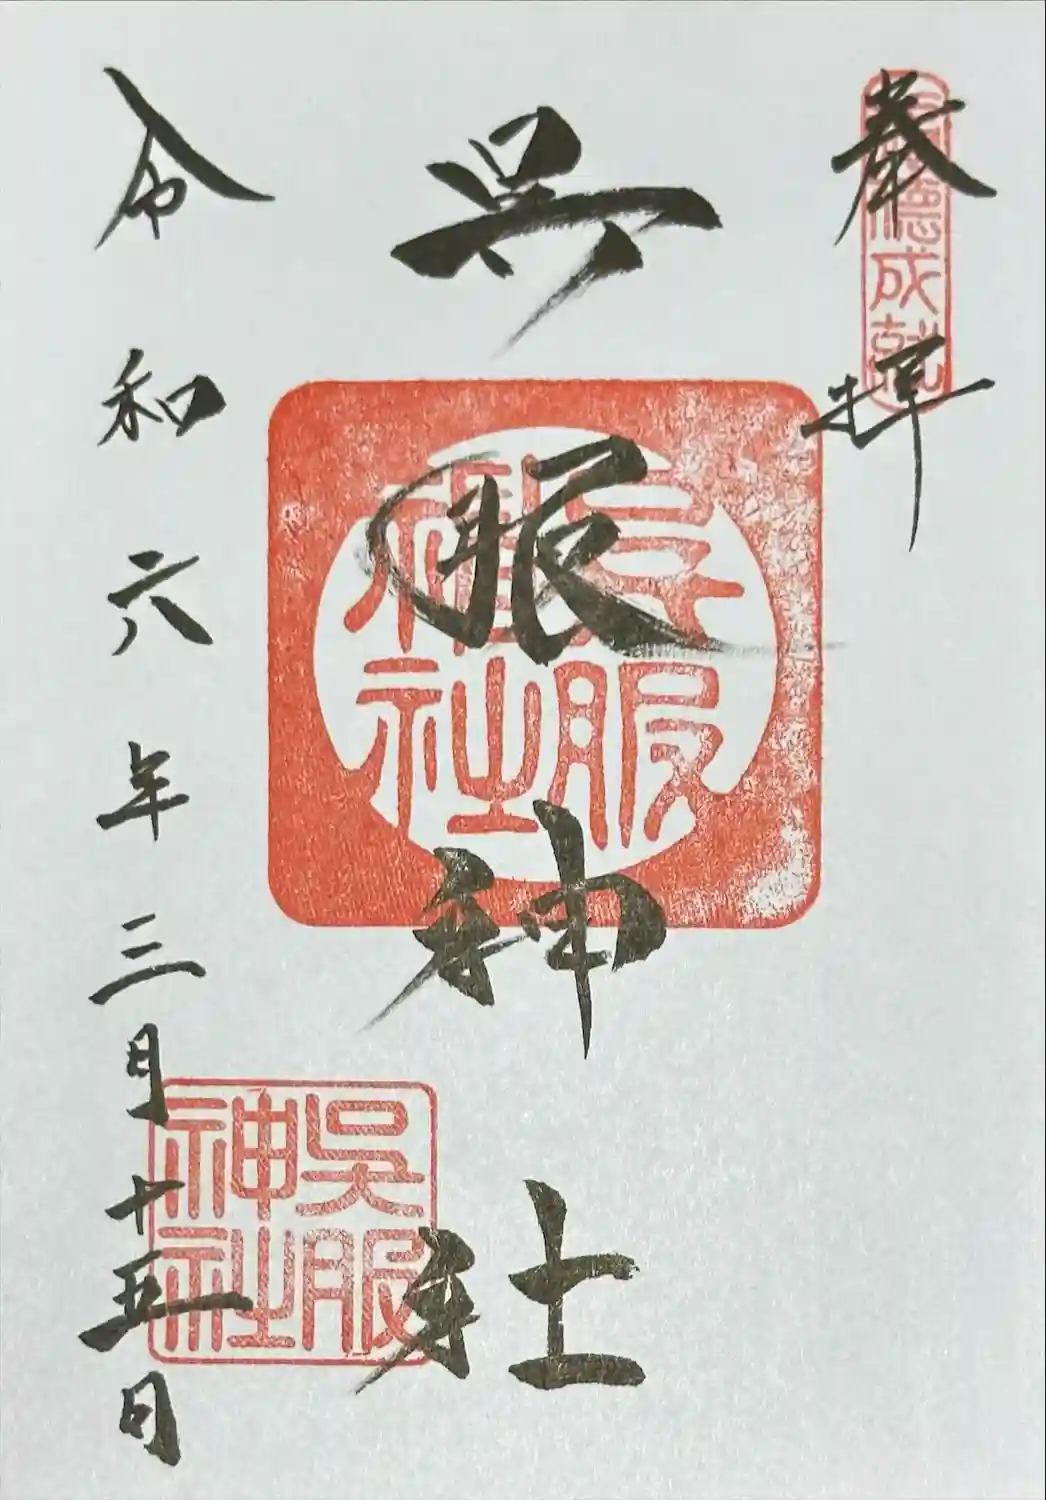 奉拝
成就
呉服神社
呉服
神社
令和六年三月十五日
呉服
神社